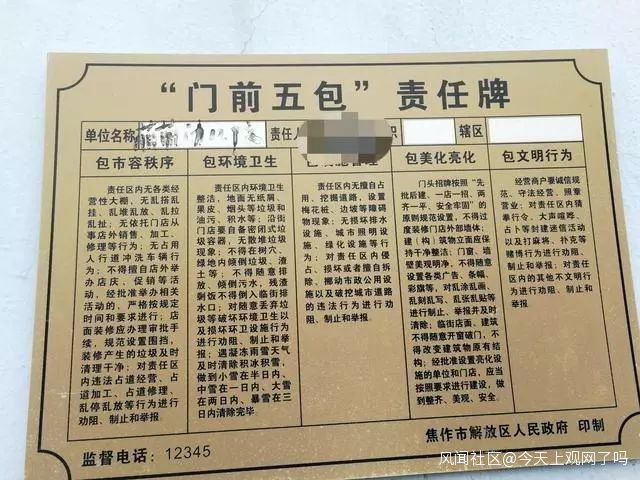 “门前五包”责任牌
单位名称
责任人
辖区
包市容秩序
责任区内无各类经
营性大棚，无乱搭乱
挂、乱堆乱放、乱拉
乱扯；无依托门店从
事店外销售、加工、
修理等行为；无占用
人行道冲洗车辆行
为；不得擅自店外举
办店庆、促销等活
动，经批准举办相关
活动的，严格按规定
时间和要求进行；店
面装修应办理审批手
续，规范设置围挡，
装修产生的垃圾及时
清理干净；对责任区
内违法占道经营、占
道加工、占道修理、
乱停乱放等行为进行
劝阻、制止和举报。
包环境卫生
责任区内环境卫生
整洁，地面无纸屑、
果皮、烟头等垃圾和
油污、积水等；沿街
门店要自备密闭式垃
圾容器，无散堆垃圾
现象；不得在树穴、
绿地内倾倒垃圾、渣
土等；不得随意排
放、倾倒污水，残渣
剩饭不得倒入临街排
水口；对随意丢弃垃
圾等破坏环境卫生以
及损坏环卫设施行为
进行劝阻、制止和举
报；遇凝冻雨雪天气
及时清除积冰积雪，
做到小雪在半日内、
中雪在一日内、大雪
在两日内、暴雪在三
日内清除完毕
责任区内无擅自占
用、挖掘道路，设置
梅花桩、边坡等障碍
物现象；无损坏排水
设施、城市照明设
施、绿化设施等行
为；对责任区内侵
占、损坏或者擅自拆
除、挪动市政公用设
施以及破挖城市道路
的违法行为进行劝
阻、制止和举报。
包美化亮化
门头招牌按照“先
批后建、一店一招、两
齐一平、安全牢固”的
的原则规范设置，不得过
度装修门店外部墙体；
建（构）筑物立面应保
持干净整洁；门窗、墙
壁美观明净，不得随意
设置各类广告、条幅、
彩旗等，对乱涂乱画、
乱刻乱写、乱张乱贴等
进行制止、举报并及时
清除；临街店面、建筑
不得随意开窗破门，不
得改变建筑物原有结
构；经批准设置亮化设
施的单位和门店，应当
按照要求进行建设，做
到整齐、美观、安全。
包文明行为
经营商户要诚信规
范、守法经营、照章营
业；对责任区内猜
拳行令、大声喧哗、
占卜等封建迷信活动
以及打麻将、扑克等
赌博行为进行劝阻、
制止和举报；对责任区
内的其他不文明行为
进行劝阻、制止和
举报。
监督电话：12345
焦作市解放区人民政府 印制
风闻社区@今天上观网了吗